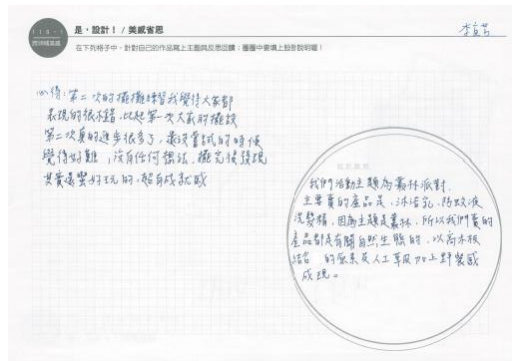 是，設計！ / 美感省思
在下列格子中，針對自己的作品寫上主題與反思回饋；圈圈中要填上設計說明喔！
心得：第二次的擺攤練習我覺得大家都
表現的很不錯，比起第一次大家的擺設
第二次真的進步很多了，最沒嘗試的時候
覺得好難，沒有任何想法，擺完後發現
其實還蠻好玩的，超有成就感
我們活動主題為叢林派對，
主要賣的產品是，沐浴乳、防蚊液
洗髮精，因為主題是叢林，所以我們賣的
產品都是有關自然生態的，以高木板
結合 的原素及人工草皮加上野餐感
成現。